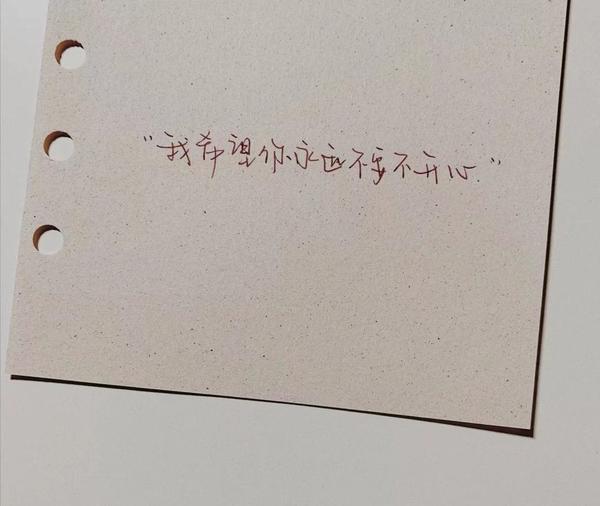 “我希望你永远不要不开心”